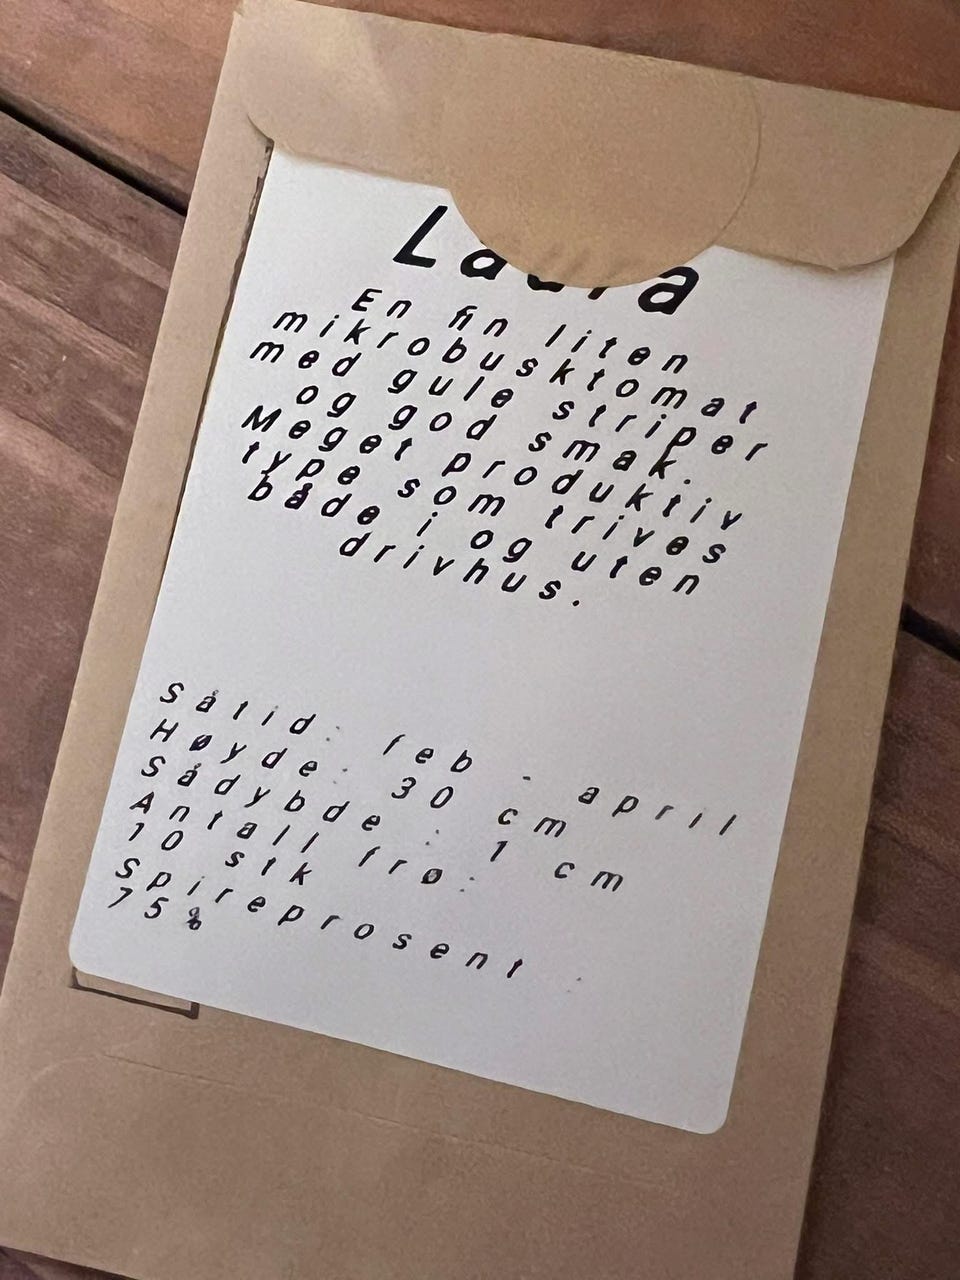 Laura
En fin liten
mikrobusktomat
med gule striper
og god smak.
Meget produktiv
type som trives
både i og uten
drivhus.
Såtid: feb - april
Høyde: 30 cm
Sådybde: 1 cm
Antall frø:
10 stk
Spireprosent:
75%